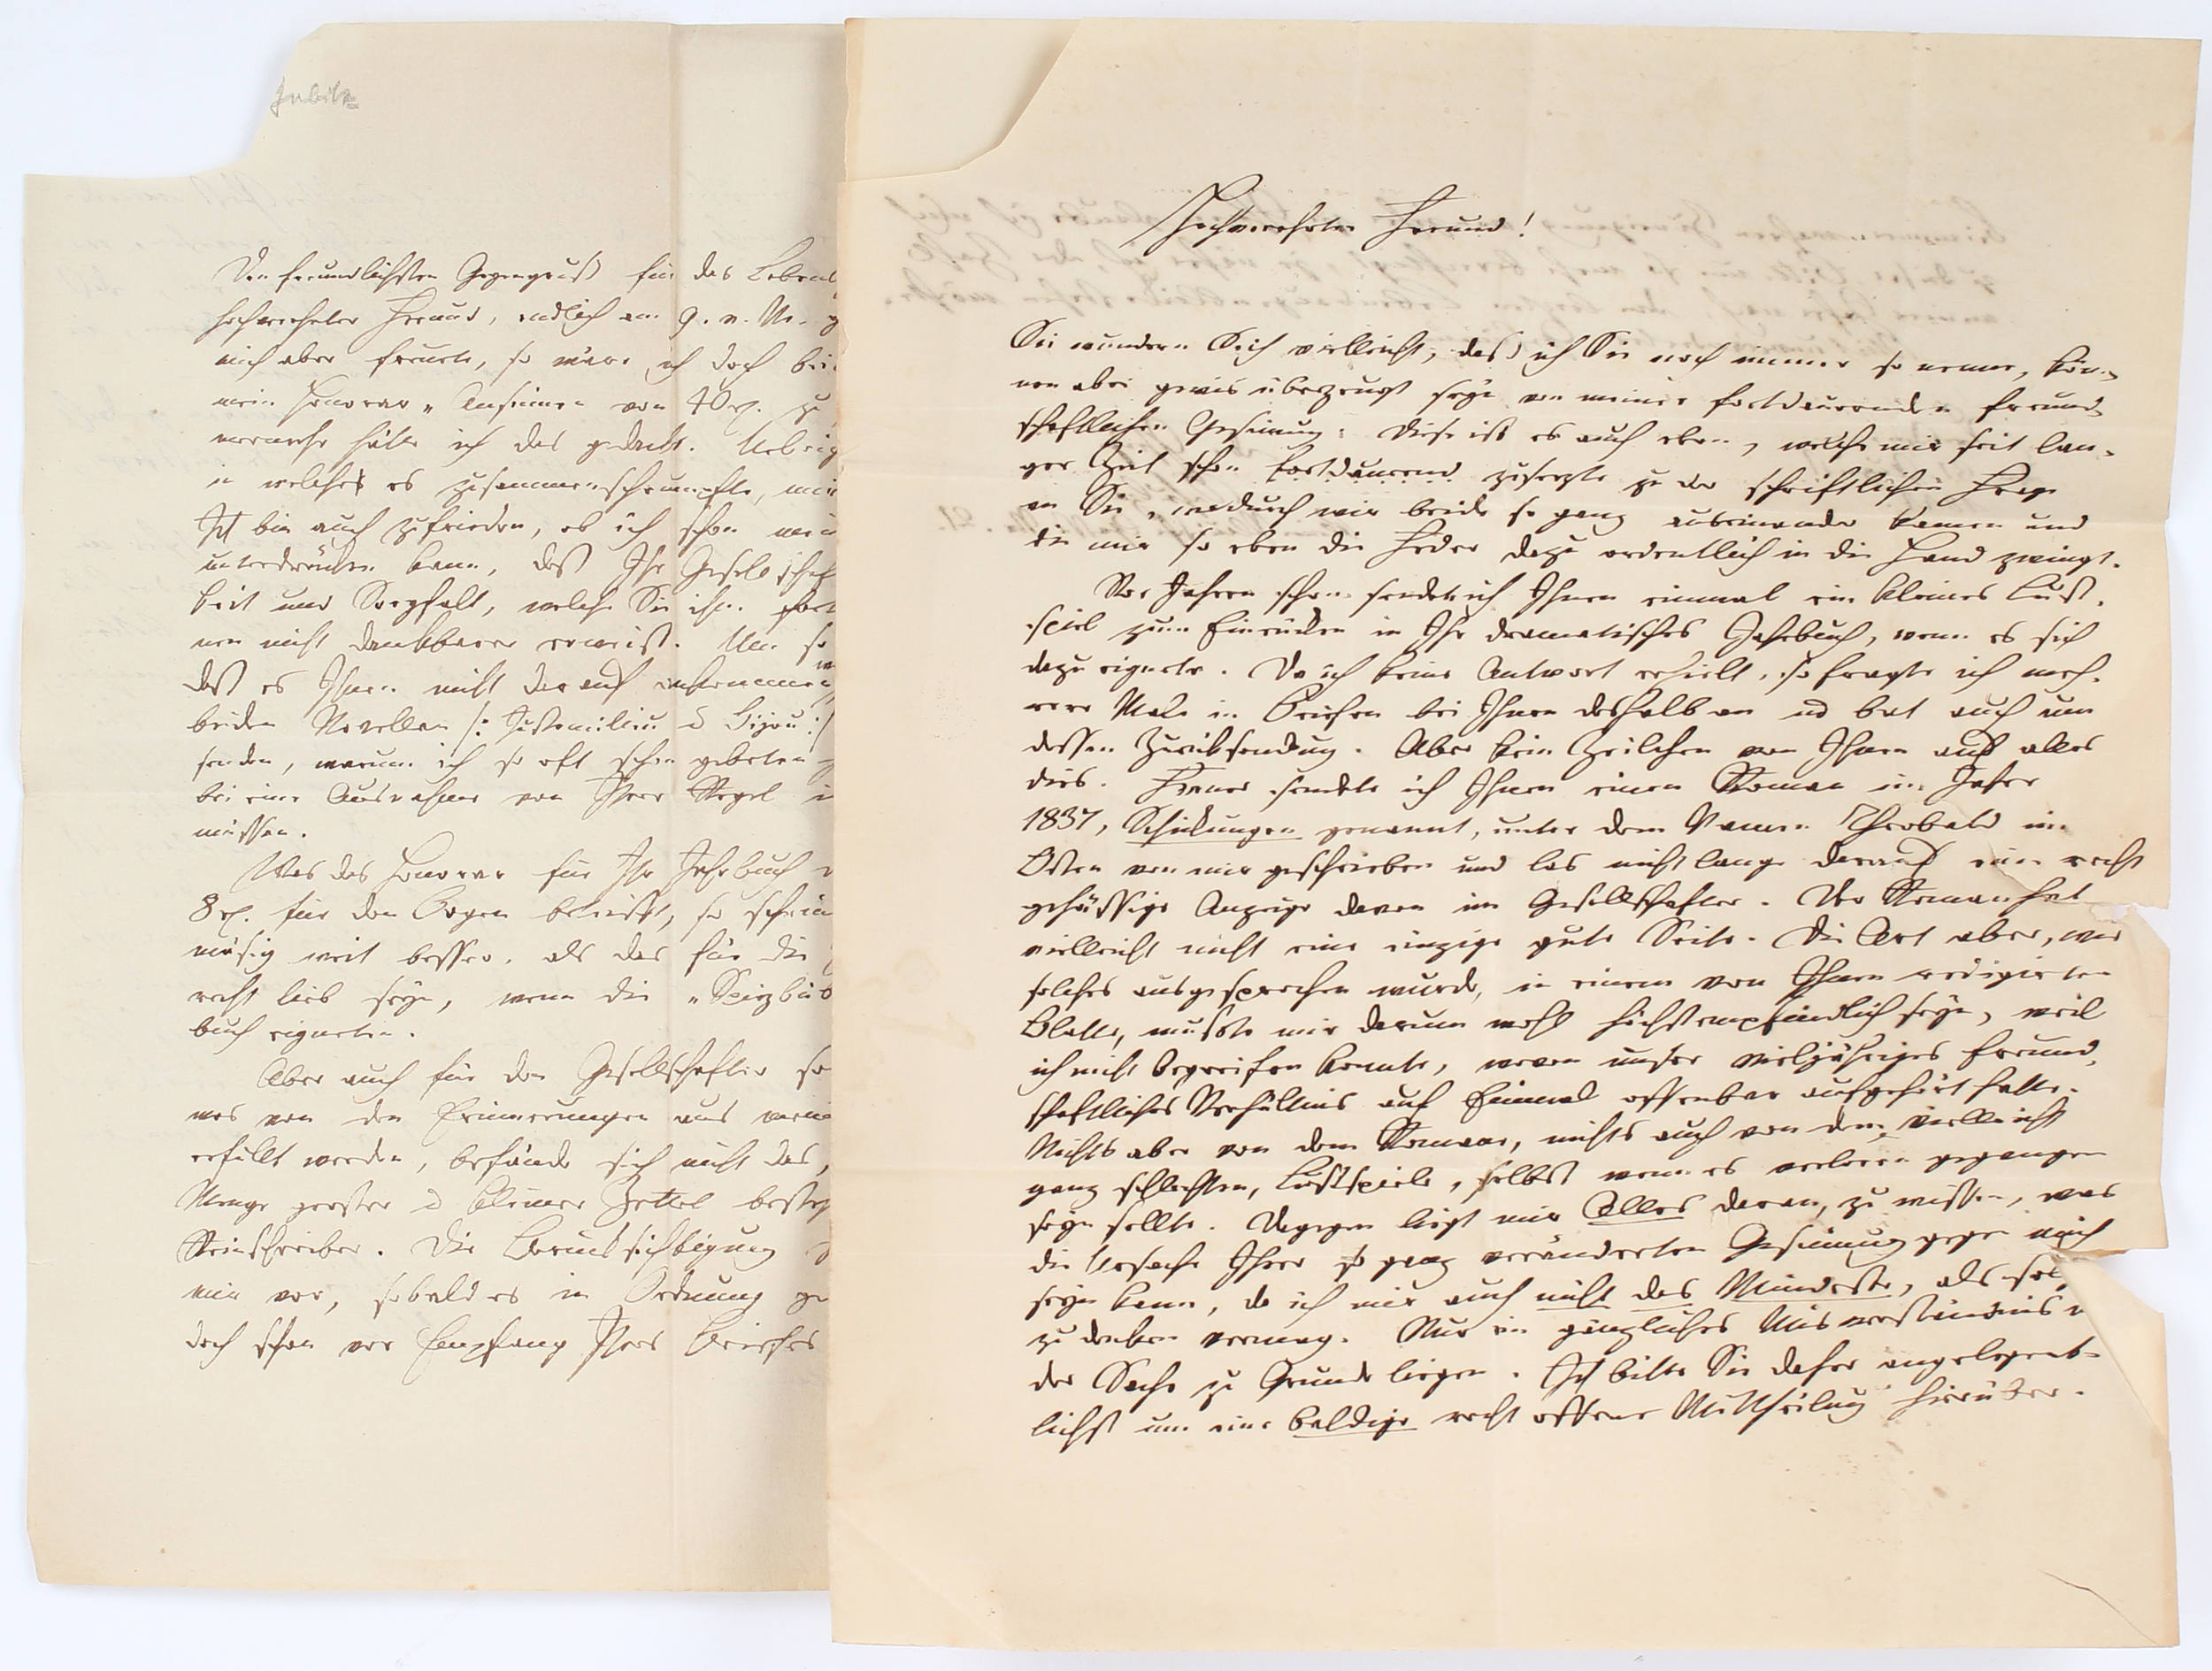 Den freundlichsten Gegengruß für das Lebens
hochverehrter Freund, endlich am 9. v. M.
mich aber freute, so wäre ich doch bei
mein Honorar „ Ansinnen von 40 rh. zu
nermehr hätte ich das gedacht. Uebrig
in welches es zusammenschrumpfte, mir
Ich bin auch zufrieden, ob ich schon
unterdrücken kann, daß Ihr Gesellschaf
keit und Sorgfalt, welche Sie ihm
nen nicht dankbarer erweist. Um so
daß es Ihnen nicht darauf ankommen
beiden Novellen /: Justemilieu & Bijou :/
senden, warum ich so oft schon gebeten
bei eine Ausnahme von Ihrer Regel
müssen.
Was das Honorar für Ihr Jahrbuch
8 rh. für den Bogen betrifft, so schein
mäsig weit besser, als das für die
recht lieb seyn, wenn die „Spizbub
buch eigneten.
Aber auch für den Gesellschafter so
was von den Erinnerungen aus
erfüllt werden, befände sich nicht das,
Menge groser & kleiner Zettel besteh
Reinschreiber. Die Berücksichtigung
mir vor, sobald es in Ordnung
doch schon vor Empfang Ihres Briefes
Hochverehrter Freund!
Sie wundern Sich vielleicht, daß ich Sie noch immer so nenne, kön-
nen aber gewis überzeugt seyn von meiner fortdauernden freund-
schaftlichen Gesinnung. Diese ist es auch eben, welche mir seit lan-
ger Zeit schon fortdauernd zusezte zu der schriftlichen Frage
an Sie, wodurch wir beide so ganz auseinander kamen und
die mir so eben die Feder dazu ordentlich in die Hand zwingt.
Vor Jahren schon sendete ich Ihnen einmal ein kleines Lust-
spiel zum Einrücken in Ihr dramatisches Jahrbuch, wenn es sich
dazu eignete. Da ich keine Antwort erhielt, so fragte ich meh-
rere Male in Briefen bei Ihnen deshalb an und bat auch um
dessen Zurüksendung. Aber kein Zeilchen von Ihnen auf alles
dies. Ferner sendete ich Ihnen einen Roman im Jahre
1837, Schikungen genannt, unter dem Namen Theobald im
Osten von mir geschrieben und las nicht lange darauf eine recht
gehässige Anzeige davon im Gesellschafter. Der Roman hat
vielleicht nicht eine einzige gute Seite. Die Art aber, wie
solches ausgesprochen wurde, in einem von Ihnen redigirten
Blatte, mußte mir darum wohl höchst empfindlich seyn, weil
ich nicht begreifen konnte, wenn unser vieljähriges freund-
schaftliches Verhältnis auf Einmal offenbar aufgehört hatte.
Nichts aber von dem Roman, nichts auch von dem, vielleicht
ganz schlechten, Lustspiele, selbst wenn es verloren gegangen
seyn sollte. Dagegen liegt mir Alles daran, zu wissen, was
die Ursache Ihrer so ganz veränderten Gesinnung gegen mich
seyn kann, da ich mir auch nicht das Mindeste, als sol
zu denken vermag. Nur ein gänzliches Misverständnis
der Sache zu Grunde liegen. Ich bitte Sie daher angelegent-
lichst um eine baldige recht offene Mittheilung hierüber.